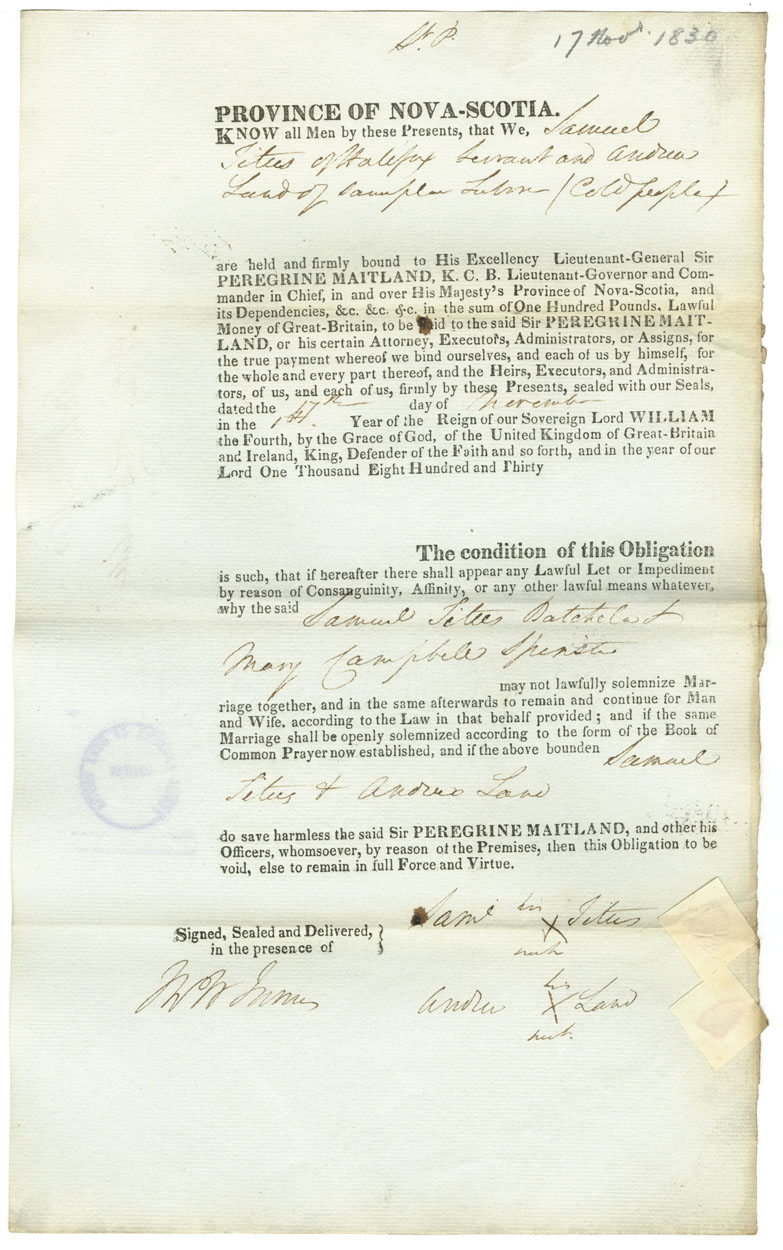 St. P.
17 Novr. 1830
PROVINCE OF NOVA-SCOTIA.
KNOW all Men by these Presents, that We, Samuel
Titus of Halifax Servant and Andrew
Land of Labor (Cold people)
are held and firmly bound to His Excellency Lieutenant-General Sir
PEREGRINE MAITLAND, K. C. B. Lieutenant-Governor and Com-
mander in Chief, in and over His Majesty's Province of Nova-Scotia, and
its Dependencies, &c. &c. &c. in the sum of One Hundred Pounds. Lawful
Money of Great-Britain, to be paid to the said Sir PEREGRINE MAIT-
LAND, or his certain Attorney, Executors, Administrators, or Assigns, for
the true payment whereof we bind ourselves, and each of us by himself, for
the whole and every part thereof, and the Heirs, Executors, and Administra-
tors, of us, and each of us, firmly by these Presents, sealed with our Seals,
dated the 17th day of November
in the 1st. Year of the Reign of our Sovereign Lord WILLIAM
the Fourth, by the Grace of God, of the United Kingdom of Great-Britain
and Ireland, King, Defender of the Faith and so forth, and in the year of our
Lord One Thousand Eight Hundred and Thirty
The condition of this Obligation
is such, that if hereafter there shall appear any Lawful Let or Impediment
by reason of Consanguinity, Affinity, or any other lawful means whatever,
why the said Samuel Titus Batchelor &
Mary Campbell Spinster
may not lawfully solemnize Mar-
riage together, and in the same afterwards to remain and continue for Man
and Wife, according to the Law in that behalf provided ; and if the same
Marriage shall be openly solemnized according to the form of the Book of
Common Prayer now established, and if the above bounden Samuel
Titus & Andrew Land
do save harmless the said Sir PEREGRINE MAITLAND, and other his
Officers, whomsoever, by reason of the Premises, then this Obligation to be
void, else to remain in full Force and Virtue.
Signed, Sealed and Delivered,
in the presence of
Saml his X Titus
mark
Andrew his X Land
mark